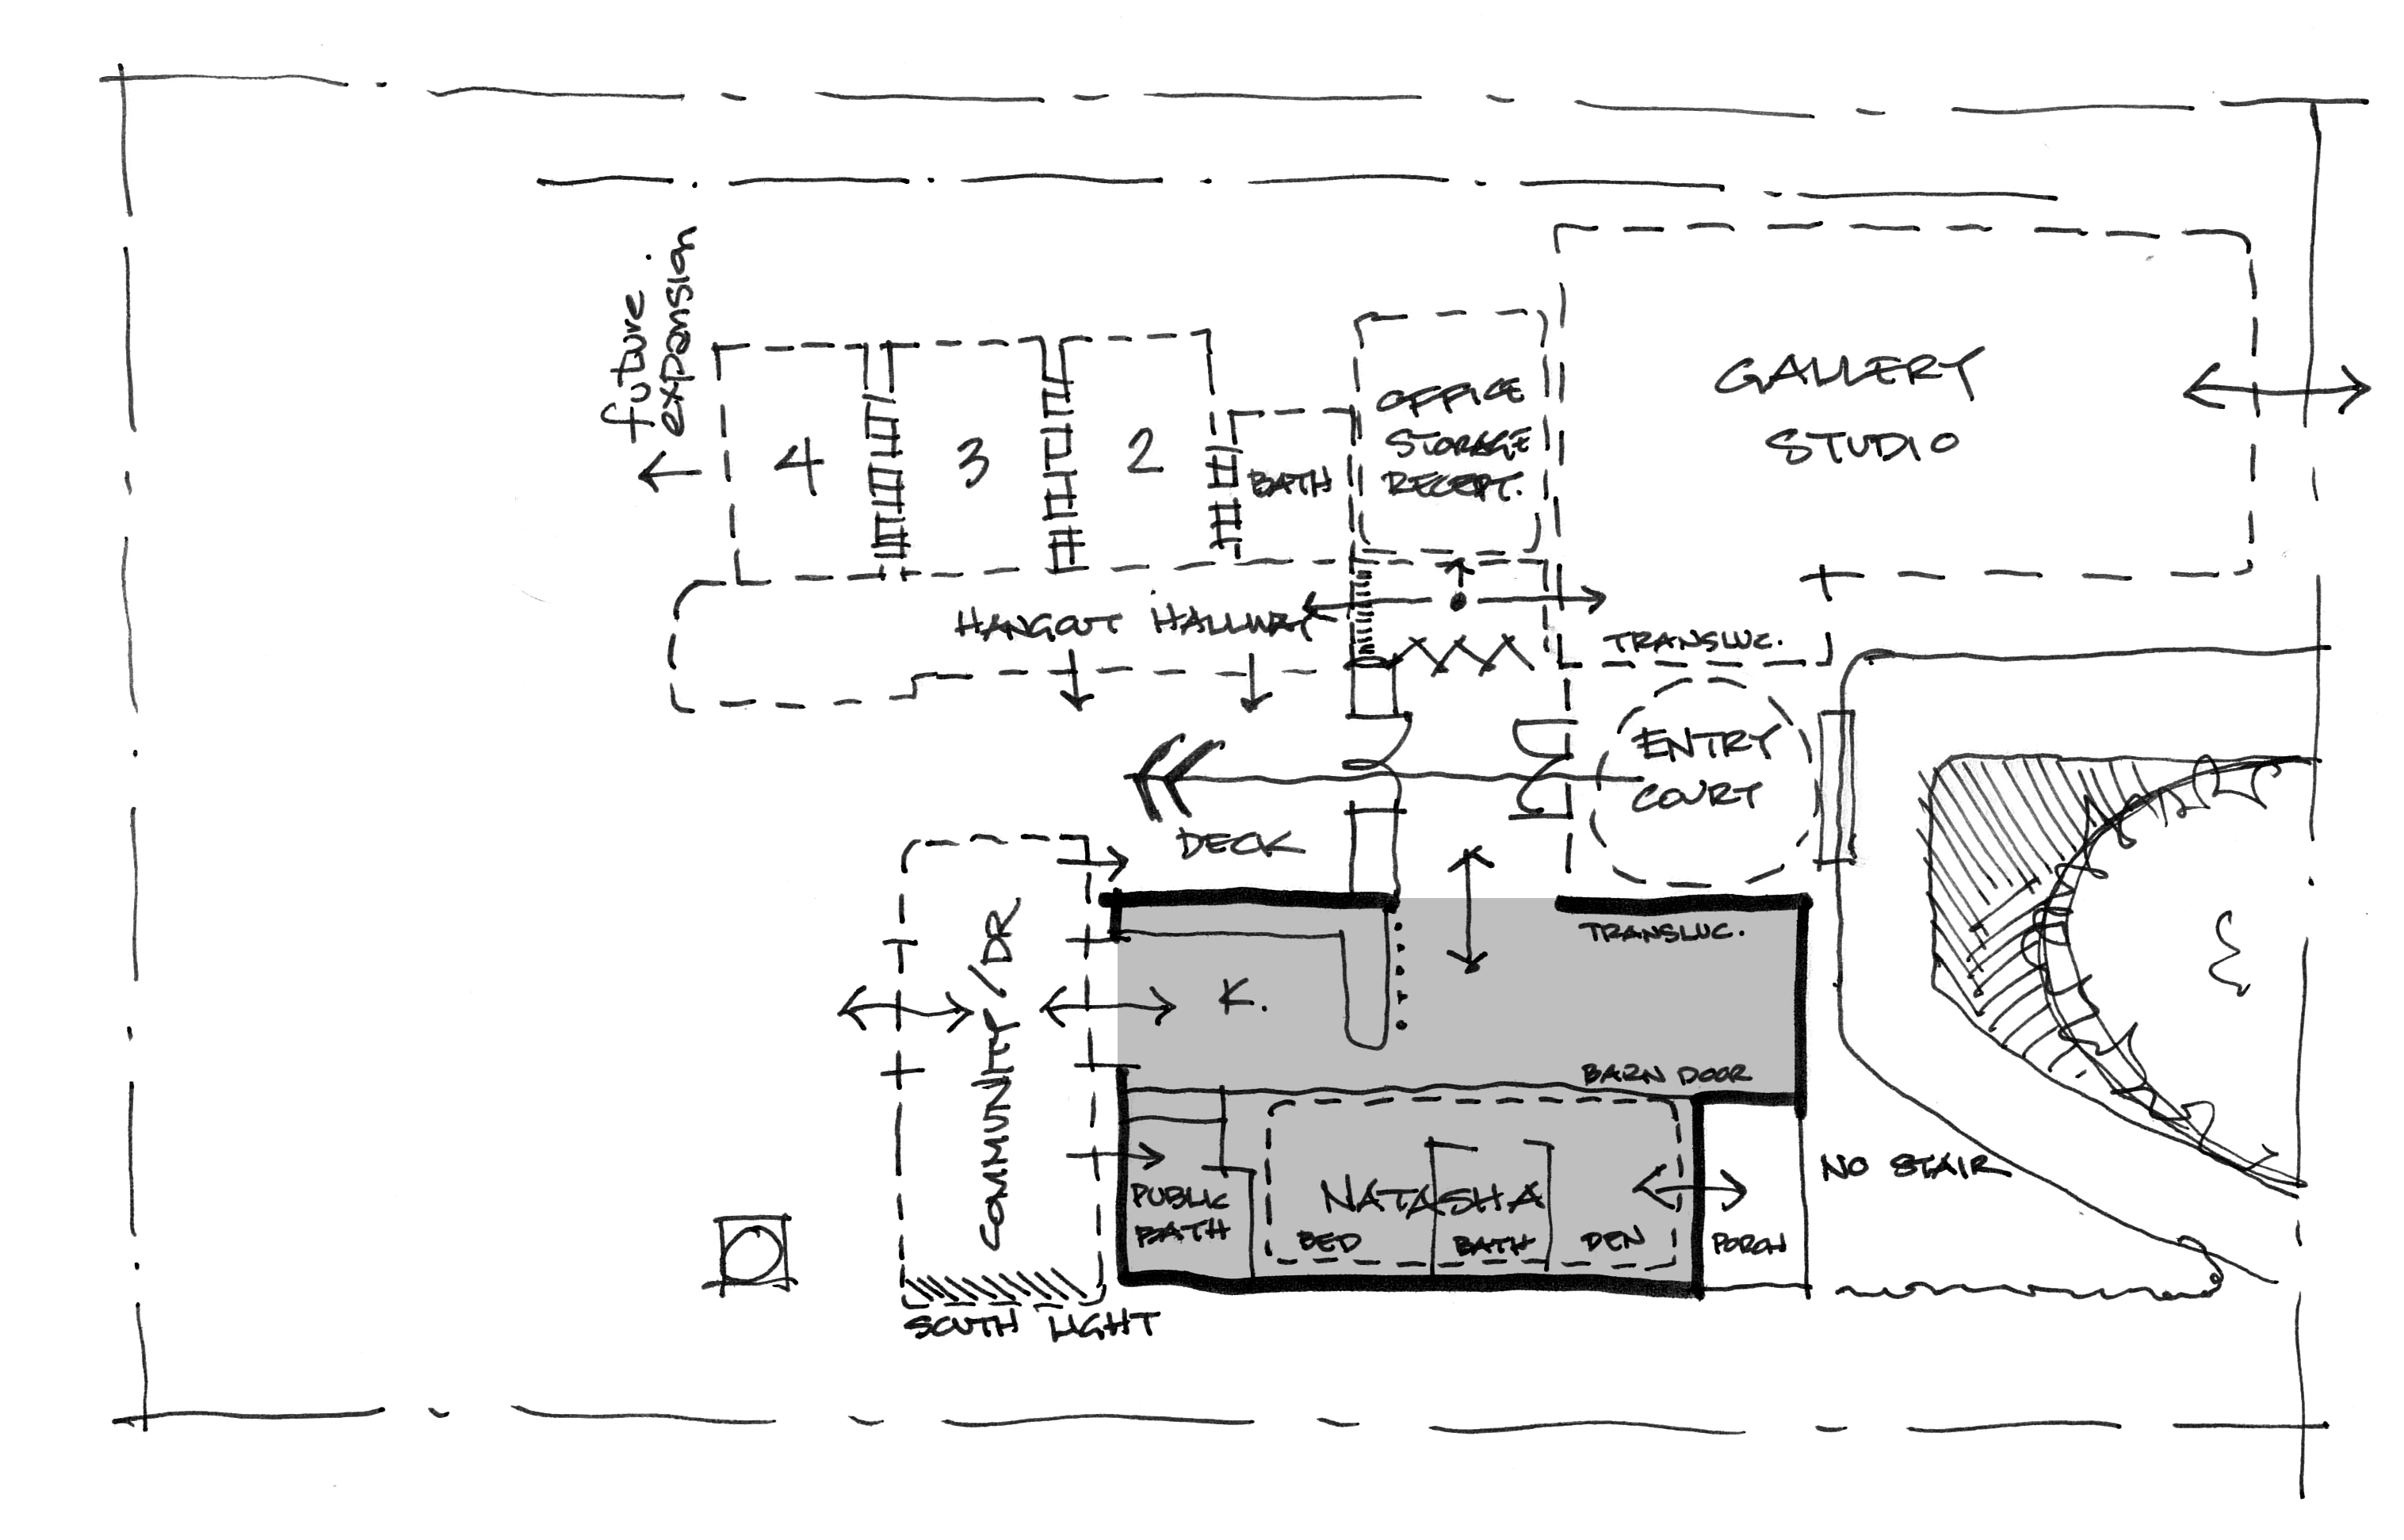 future
expansion
4
3
2
BATH
OFFICE
STORAGE
RECEPT.
GALLERY
STUDIO
HANGOUT HALLWAY
TRANSLUC.
ENTRY
COURT
DECK
COMMUNITY/DR
TRANSLUC.
K.
BARN DOOR
NO STAIR
PUBLIC
BATH
NATASHA
BED
BATH
DEN
PORCH
SOUTH LIGHT